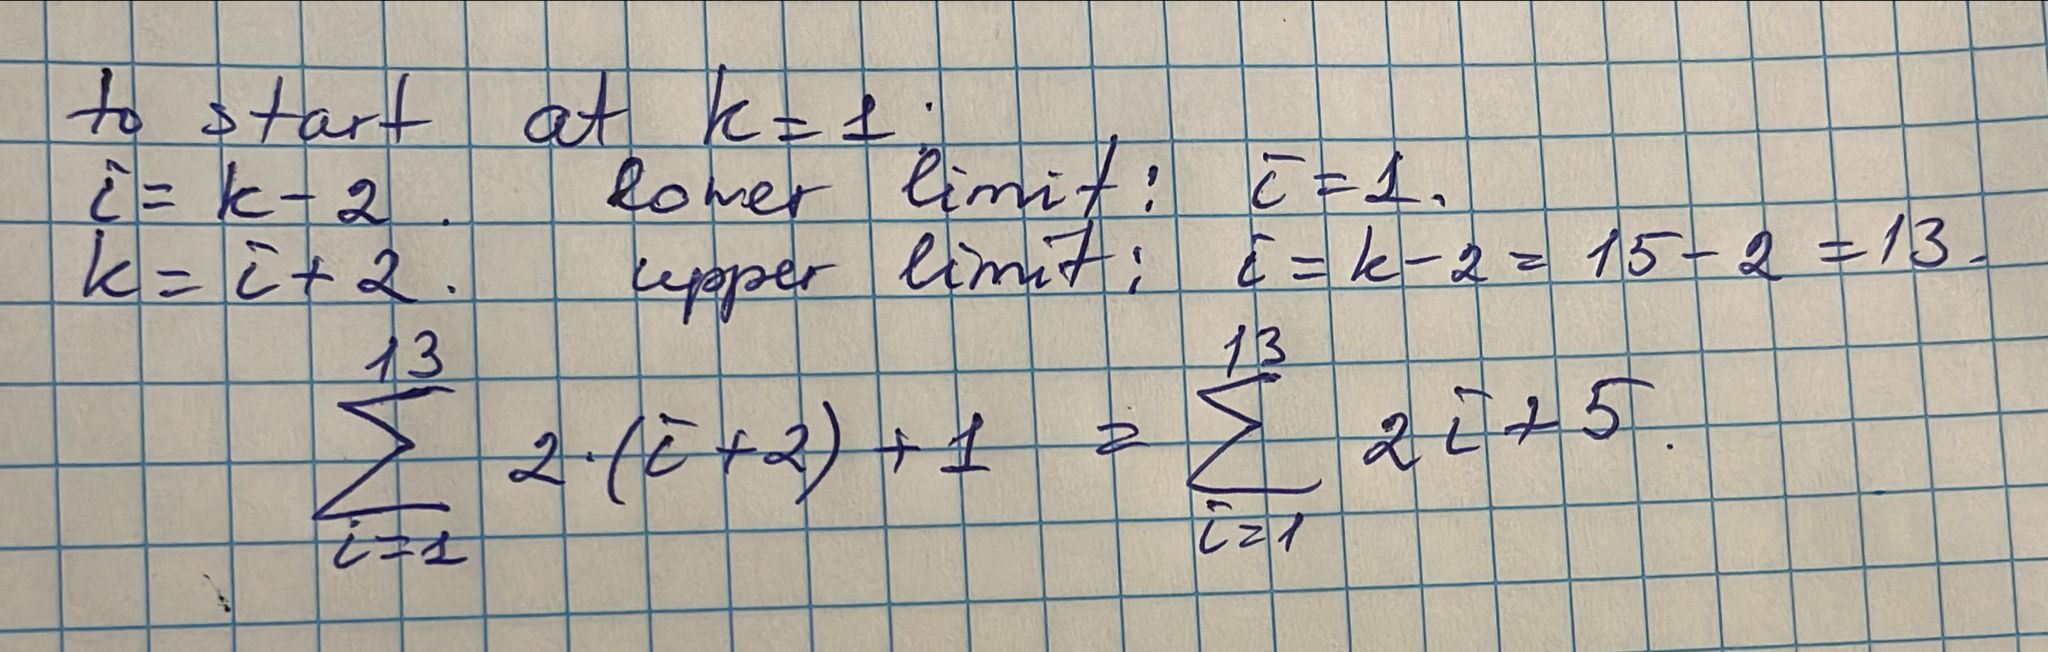 to start at k = 1.
i = k - 2. lower limit: i = 1.
k = i + 2. upper limit: i = k - 2 = 15 - 2 = 13.
13 13
∑ 2·(i + 2) + 1 = ∑ 2i + 5.
i=1 i=1